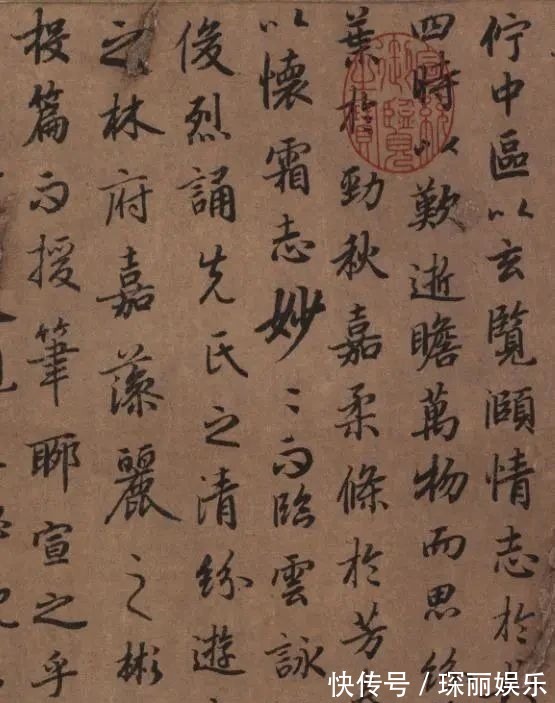 佇中區以玄覽頤情志於
四時以歎逝瞻萬物而思
葉於勁秋嘉柔條於芳
以懷霜志妙〻而臨雲詠
俊烈誦先氏之清紛遊
之林府嘉藻麗之彬
投篇而援筆聊宣之乎
快传号/琛丽娱乐